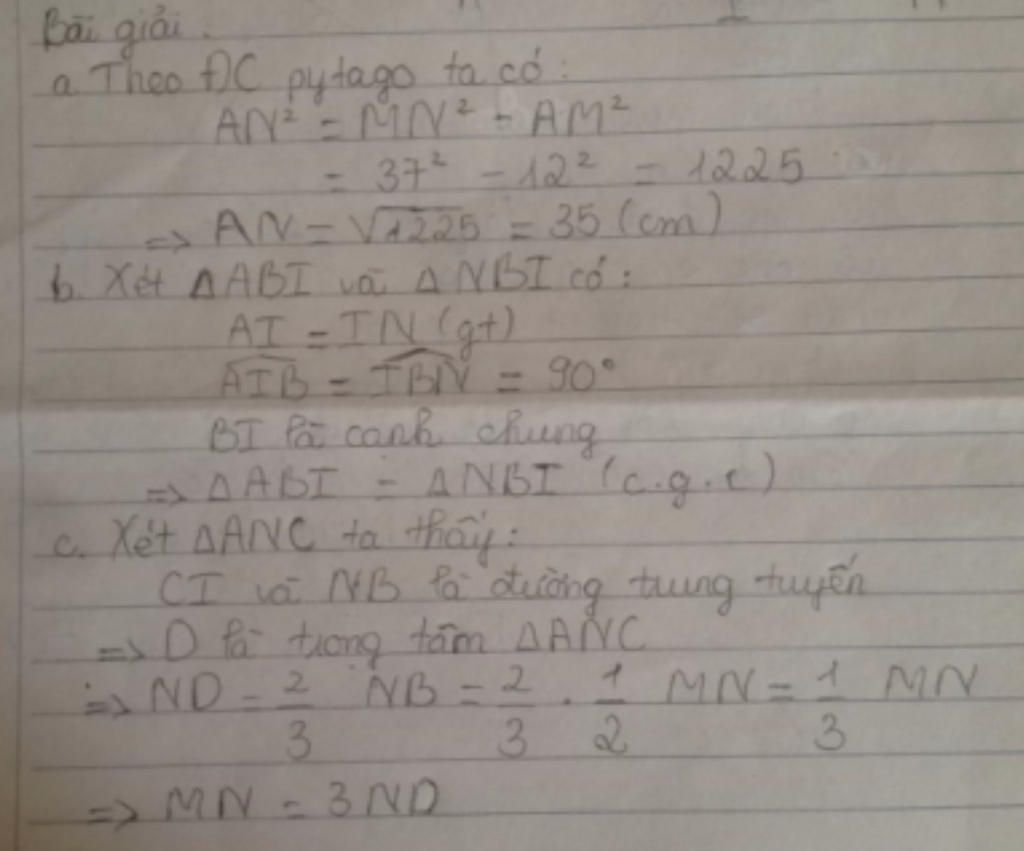 Bài giải.
a. Theo ĐL pytago ta có:
AN² = MN² - AM²
= 37² - 12² = 1225
=> AN = √1225 = 35 (cm)
b. Xét ΔABI và ΔNBI có:
AI = IN (gt)
AIB = IBN = 90°
BI là cạnh chung
=> ΔABI = ΔNBI (c.g.c)
c. Xét ΔANC ta thấy:
CI và NB là đường trung tuyến
=> D là trọng tâm ΔANC
=> ND = 2/3 NB = 2/3 . 1/2 MN = 1/3 MN
=> MN = 3ND